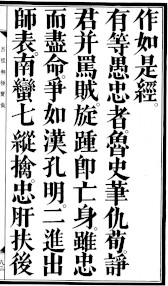 作如是經。
有等愚忠者。魯史華仇荀諍
君并罵賊。旋踵即亡身。雖忠
而盡命。爭如漢孔明。二進出
師表。南蠻七縱擒。忠肝扶後